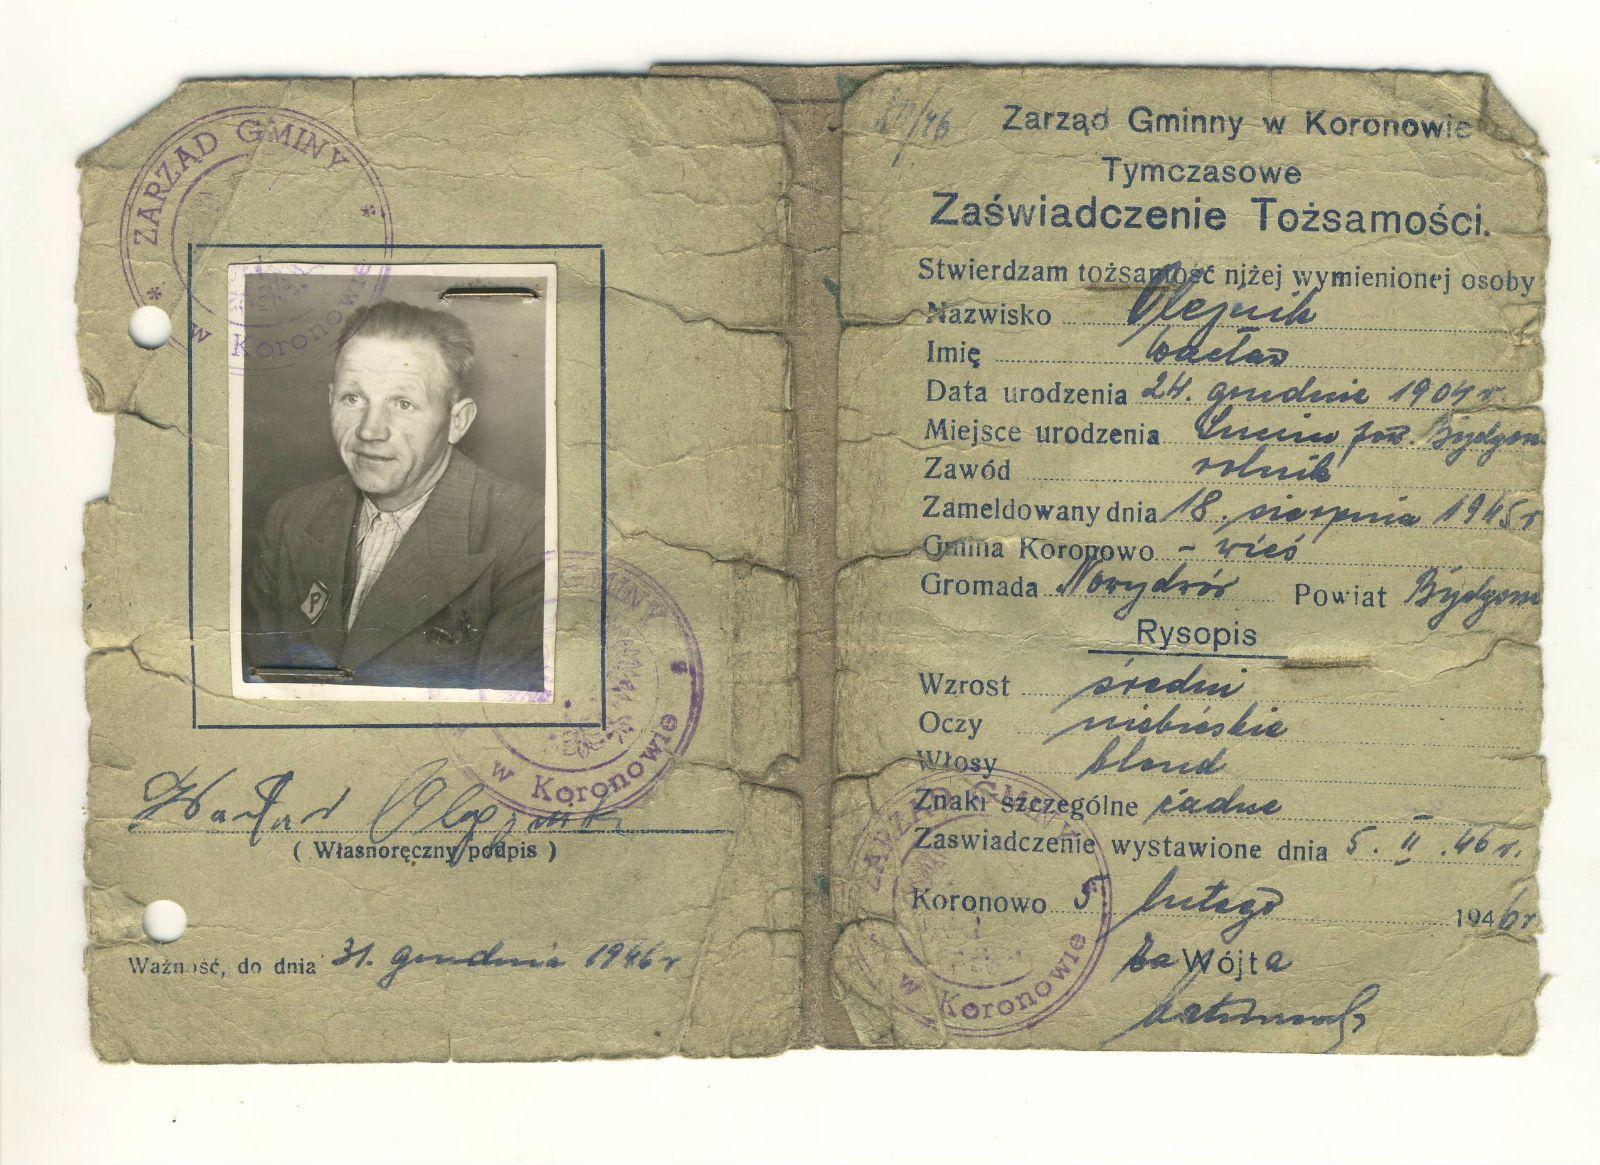 ZARZĄD GMINY
w Koronowie
P
ZARZĄD GMINY
w Koronowie
Wacław Olejnik
( Własnoręczny podpis )
Ważność, do dnia 31. grudnia 1946 r
/46
Zarząd Gminny w Koronowie
Tymczasowe
Zaświadczenie Tożsamości.
Stwierdzam tożsamość niżej wymienionej osoby
Nazwisko Olejnik
Imię Wacław
Data urodzenia 24. grudnia 1904 r.
Miejsce urodzenia pow. Bydgosz
Zawód rolnik
Zameldowany dnia 18. sierpnia 1945 r
Gmina Koronowo - wieś
Gromada Nowydwór Powiat Bydgosz
Rysopis
Wzrost średni
Oczy niebieskie
Włosy blond
Znaki szczególne żadne
Zaświadczenie wystawione dnia 5. II. 46 r.
Koronowo 5 lutego 1946 r
za Wójta
ZARZĄD GMINY
w Koronowie